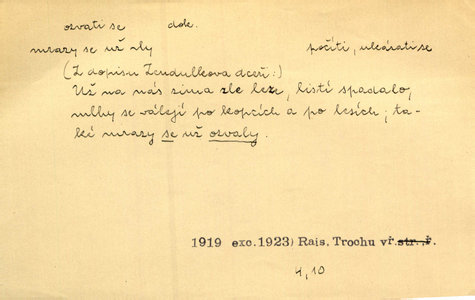 ozvati se dok.
mrazy se už zly počíti, ukázati se
(Z dopisu Zendulkova dceři:)
Už na nás zima zle leze, listí spadalo,
mlhy se válejí po kopcích a po lesích; ta-
ké mrazy se už ozvaly.
1919 exc. 1923) Rais, Trochu vř. str. ř.
4, 10